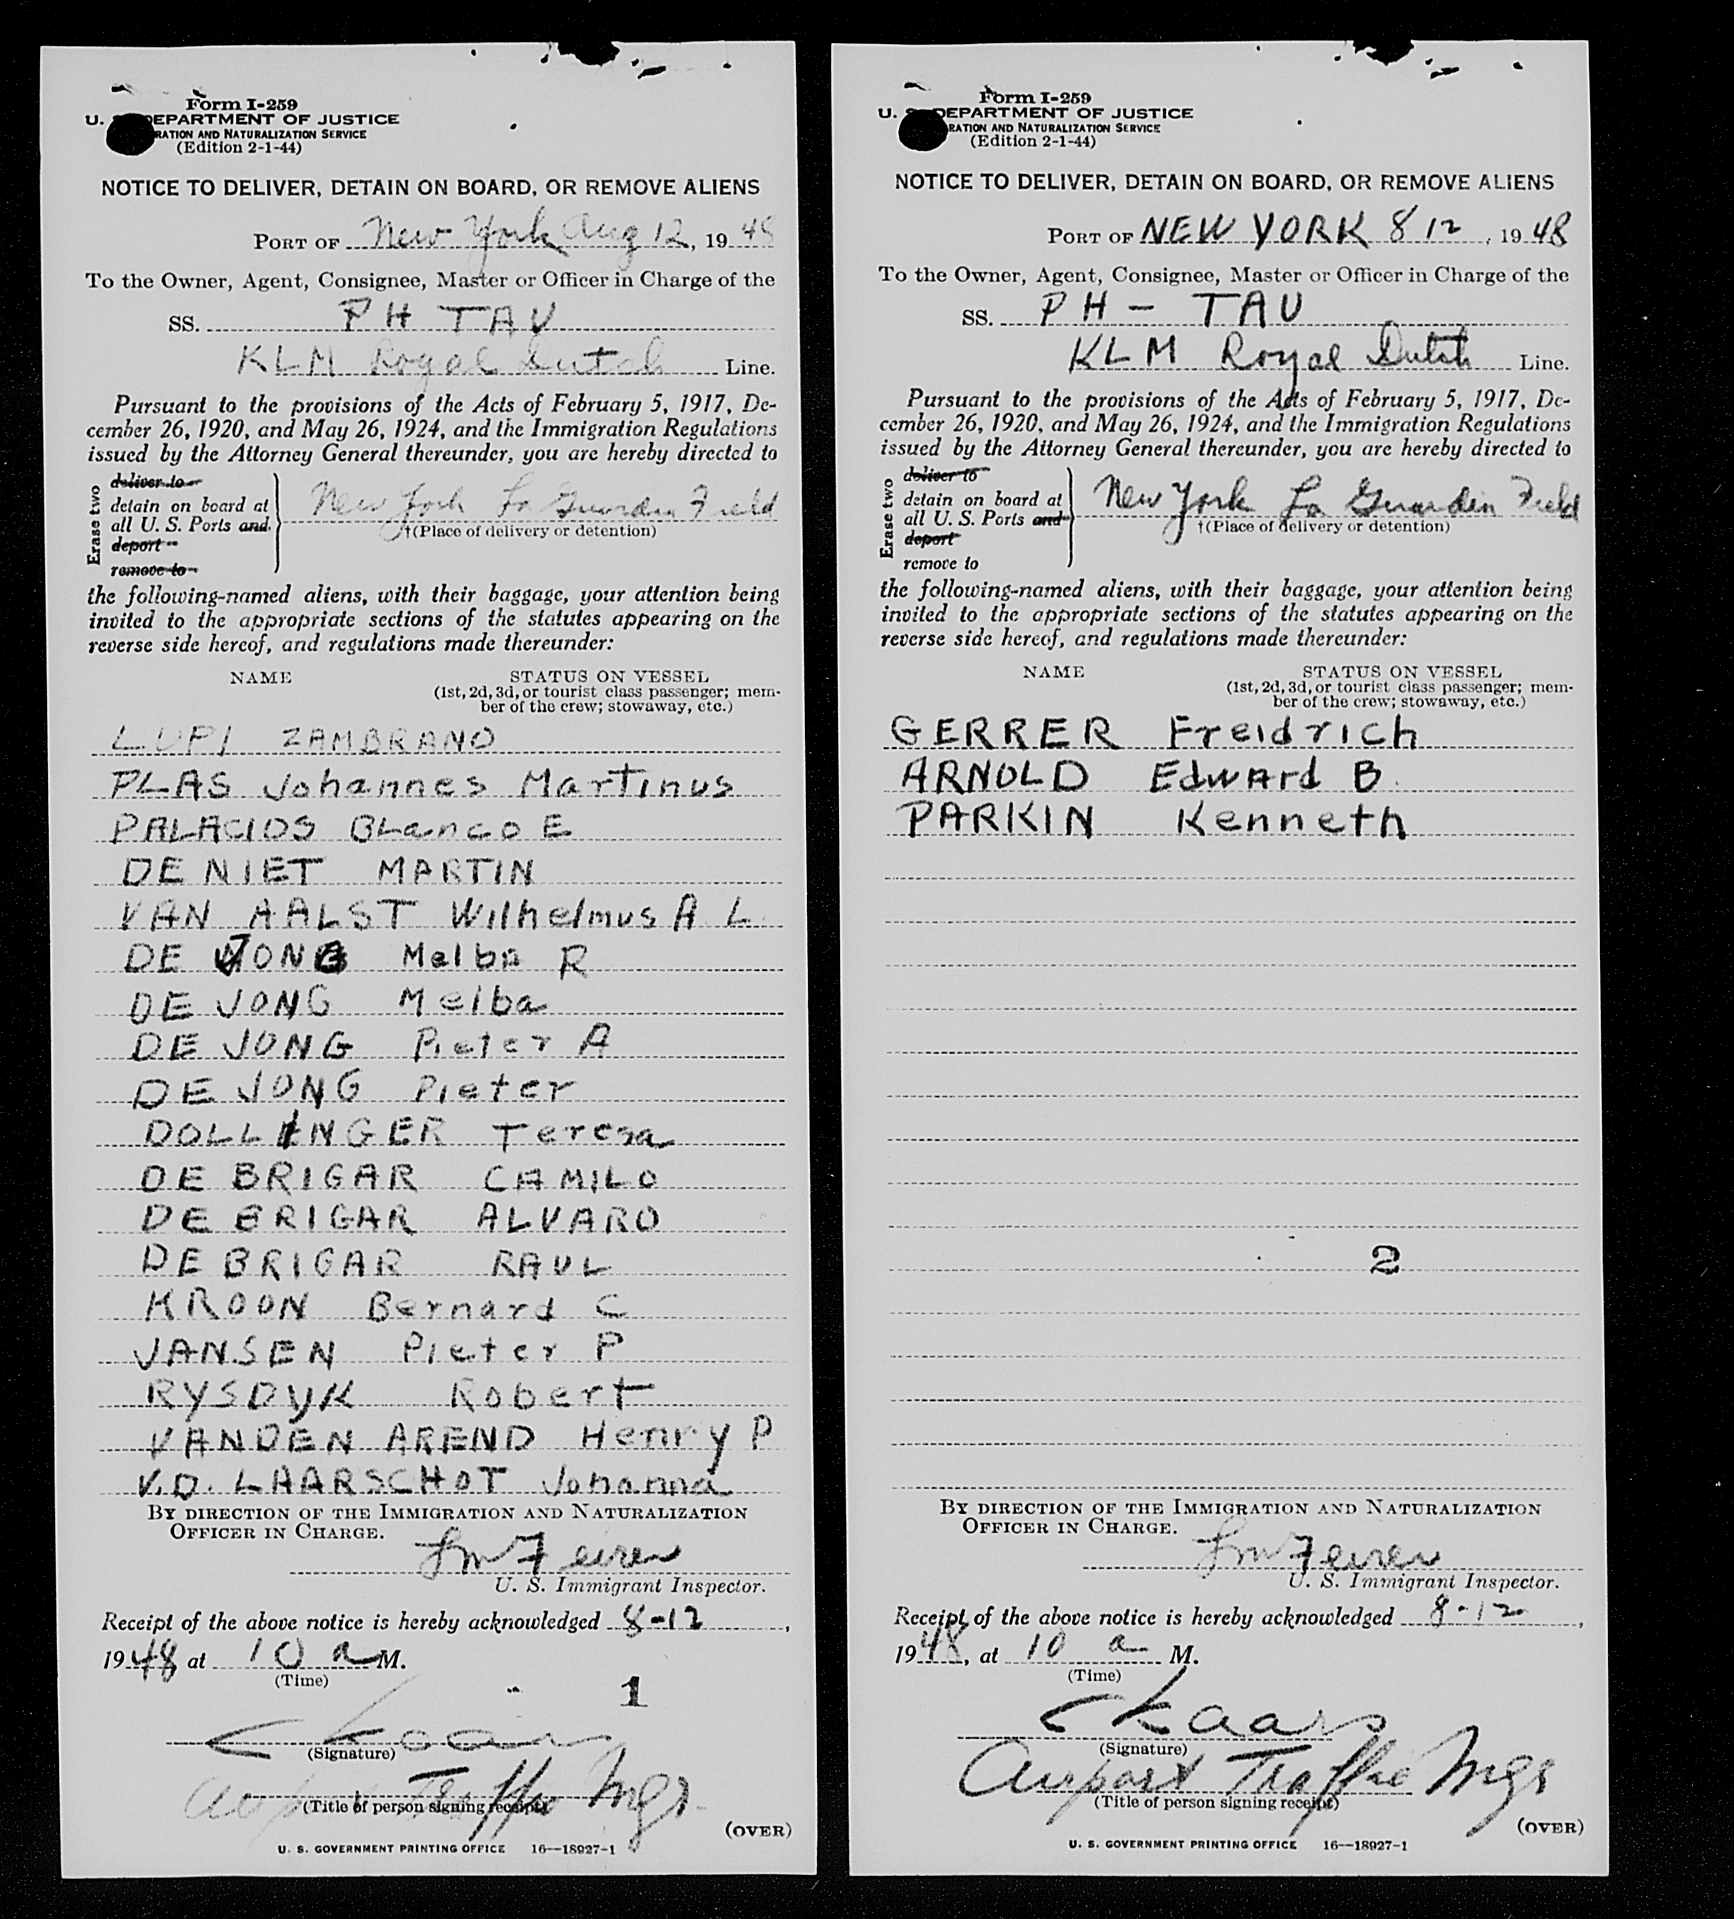 Form I-259
U. S. DEPARTMENT OF JUSTICE
RATION AND NATURALIZATION SERVICE
(Edition 2-1-44)
NOTICE TO DELIVER, DETAIN ON BOARD, OR REMOVE ALIENS
PORT OF New York Aug 12, 1948
To the Owner, Agent, Consignee, Master or Officer in Charge of the
SS. PH TAU
KLM Royal Dutch Line.
Pursuant to the provisions of the Acts of February 5, 1917, De-
cember 26, 1920, and May 26, 1924, and the Immigration Regulations
issued by the Attorney General thereunder, you are hereby directed to
Erase two
deliver to
detain on board at
all U. S. Ports and
deport
remove to
New York La Guardia Field
†(Place of delivery or detention)
the following-named aliens, with their baggage, your attention being
invited to the appropriate sections of the statutes appearing on the
reverse side hereof, and regulations made thereunder:
NAME STATUS ON VESSEL
(1st, 2d, 3d, or tourist class passenger; mem-
ber of the crew; stowaway, etc.)
LUPI ZAMBRANO
PLAS Johannes Martinus
PALACIOS BLanco E
DE NIET MARTIN
VAN AALST Wilhelmus A L.
DE JONG Melba R
DE JONG Melba
DE JONG Pieter A
DE JONG Pieter
DOLLINGER Teresa
DE BRIGAR CAMILO
DE BRIGAR ALVARO
DE BRIGAR RAUL
KROON Bernard C
JANSEN Pieter P
RYSDYK Robert
VANDEN AREND Henry P
V.D. LAARSCHOT Johanna
BY DIRECTION OF THE IMMIGRATION AND NATURALIZATION
OFFICER IN CHARGE.
U. S. Immigrant Inspector.
Receipt of the above notice is hereby acknowledged 8-12,
1948, at 10 a M.
(Time)
1
(Signature)
Airport Traffic Mgr
(Title of person signing receipt)
(OVER)
U. S. GOVERNMENT PRINTING OFFICE 16—18927-1
Form I-259
U. S. DEPARTMENT OF JUSTICE
RATION AND NATURALIZATION SERVICE
(Edition 2-1-44)
NOTICE TO DELIVER, DETAIN ON BOARD, OR REMOVE ALIENS
PORT OF NEW YORK 8 12, 1948
To the Owner, Agent, Consignee, Master or Officer in Charge of the
SS. PH - TAU
KLM Royal Dutch Line.
Pursuant to the provisions of the Acts of February 5, 1917, De-
cember 26, 1920, and May 26, 1924, and the Immigration Regulations
issued by the Attorney General thereunder, you are hereby directed to
Erase two
deliver to
detain on board at
all U. S. Ports and
deport
remove to
New York La Guardia Field
†(Place of delivery or detention)
the following-named aliens, with their baggage, your attention being
invited to the appropriate sections of the statutes appearing on the
reverse side hereof, and regulations made thereunder:
NAME STATUS ON VESSEL
(1st, 2d, 3d, or tourist class passenger; mem-
ber of the crew; stowaway, etc.)
GERRER Freidrich
ARNOLD Edward B.
PARKIN Kenneth
2
BY DIRECTION OF THE IMMIGRATION AND NATURALIZATION
OFFICER IN CHARGE.
U. S. Immigrant Inspector.
Receipt of the above notice is hereby acknowledged 8-12,
1948, at 10 a M.
(Time)
(Signature)
Airport Traffic Mgr
(Title of person signing receipt)
(OVER)
U. S. GOVERNMENT PRINTING OFFICE 16—18927-1